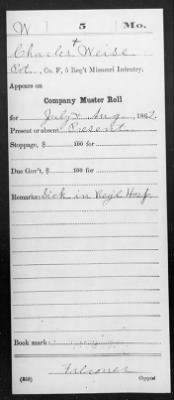 W 5 Mo.
Charles Weise
Pvt., Co. F, 5 Reg't Missouri Infantry.
Appears on
Company Muster Roll
for July & Aug, 1862.
Present or absent Present
Stoppage, $ 100 for
Due Gov't, $ 100 for
Remarks: Sick in Regt Hosp.
Book mark:
Falconer
(858) Copyist